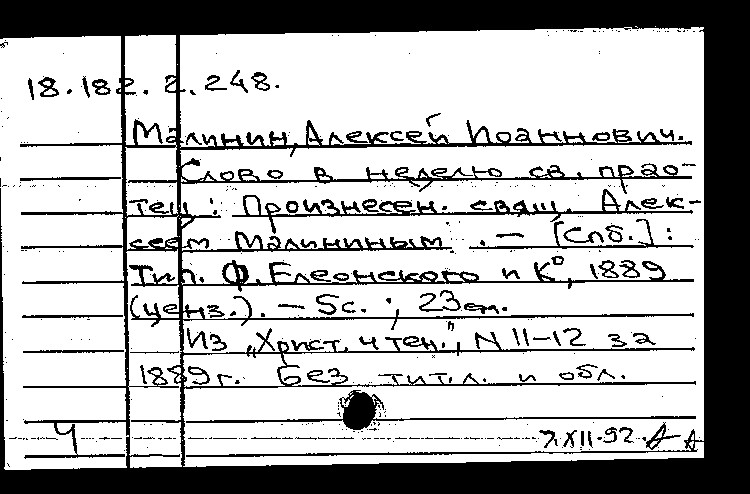 18.182.2.248.
Малинин, Алексей Иоаннович.
Слово в неделю св. прао-
тец: Произнесен. свящ. Алек-
сеем Малининым. — [Спб.]:
Тип. Ф. Елеонского и К°, 1889
(ценз.). — 5с. ; 23см.
Из „Христ. чтен.", N 11-12 за
1889г. Без тит.л. и обл.
Ч 7.XII.92.